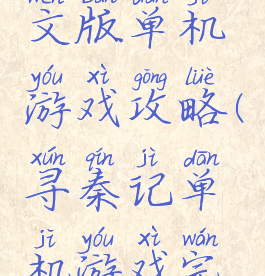 wén bǎn dān jī
文版单机
yóu xì gōng lüè
游戏攻略(
xún qín jì dān
寻秦记单
jī yóu xì wán
机游戏完